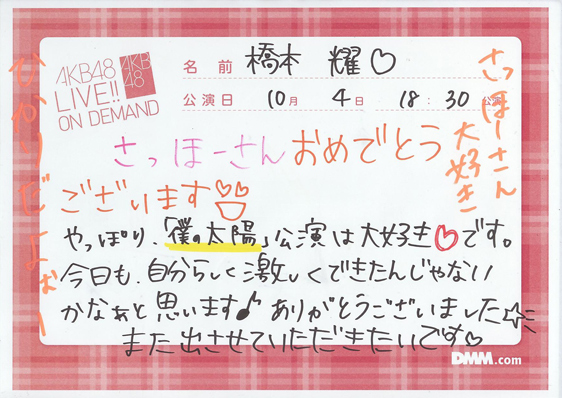 AKB48
LIVE!!
ON DEMAND
AKB
48
名前 橋本 耀♡
公演日 10月 4日 18:30 公演
さっほーさん
大好き
ひかりだよぉー
さっほーさんおめでとう
ございます
やっぱり、「僕の太陽」公演は大好き♡です。
今日も、自分らしく激しくできたんじゃない
かなぁと思います♪ ありがとうございました☆
また出させていただきたいです♡
DMM.com